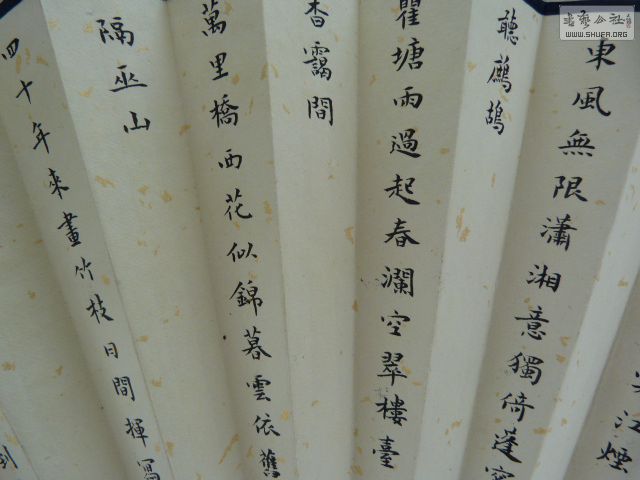 書藝公社
WWW.SHUFA.ORG
江煙
東風無限瀟湘意獨倚蓬窓
聽鷓鴣
瞿塘雨過起春瀾空翠樓臺
杳靄間
萬里橋西花似錦暮雲依舊
隔巫山
四十年來畫竹枝日間揮寫